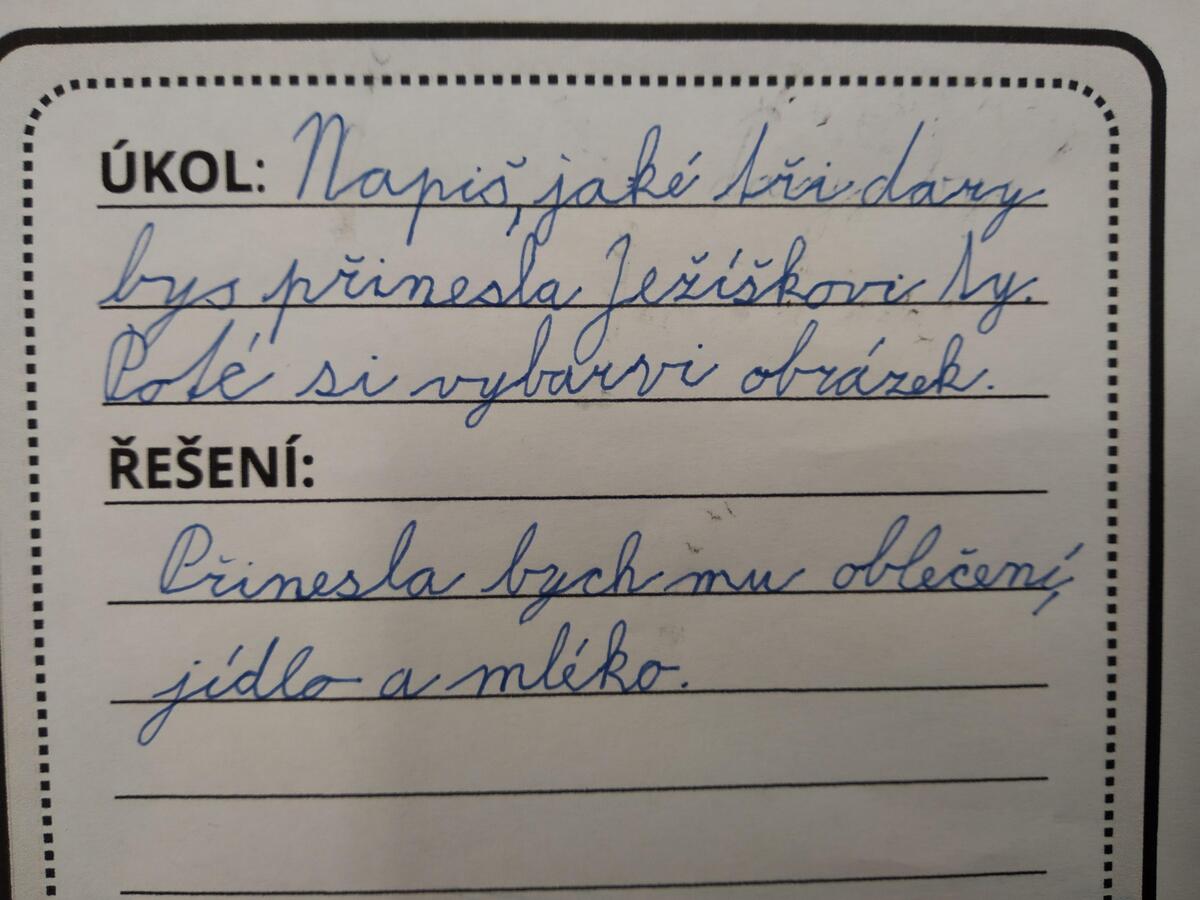 ÚKOL: Napiš, jaké tři dary
bys přinesla Ježíškovi ty.
Poté si vybarvi obrázek.
ŘEŠENÍ:
Přinesla bych mu oblečení,
jídlo a mléko.